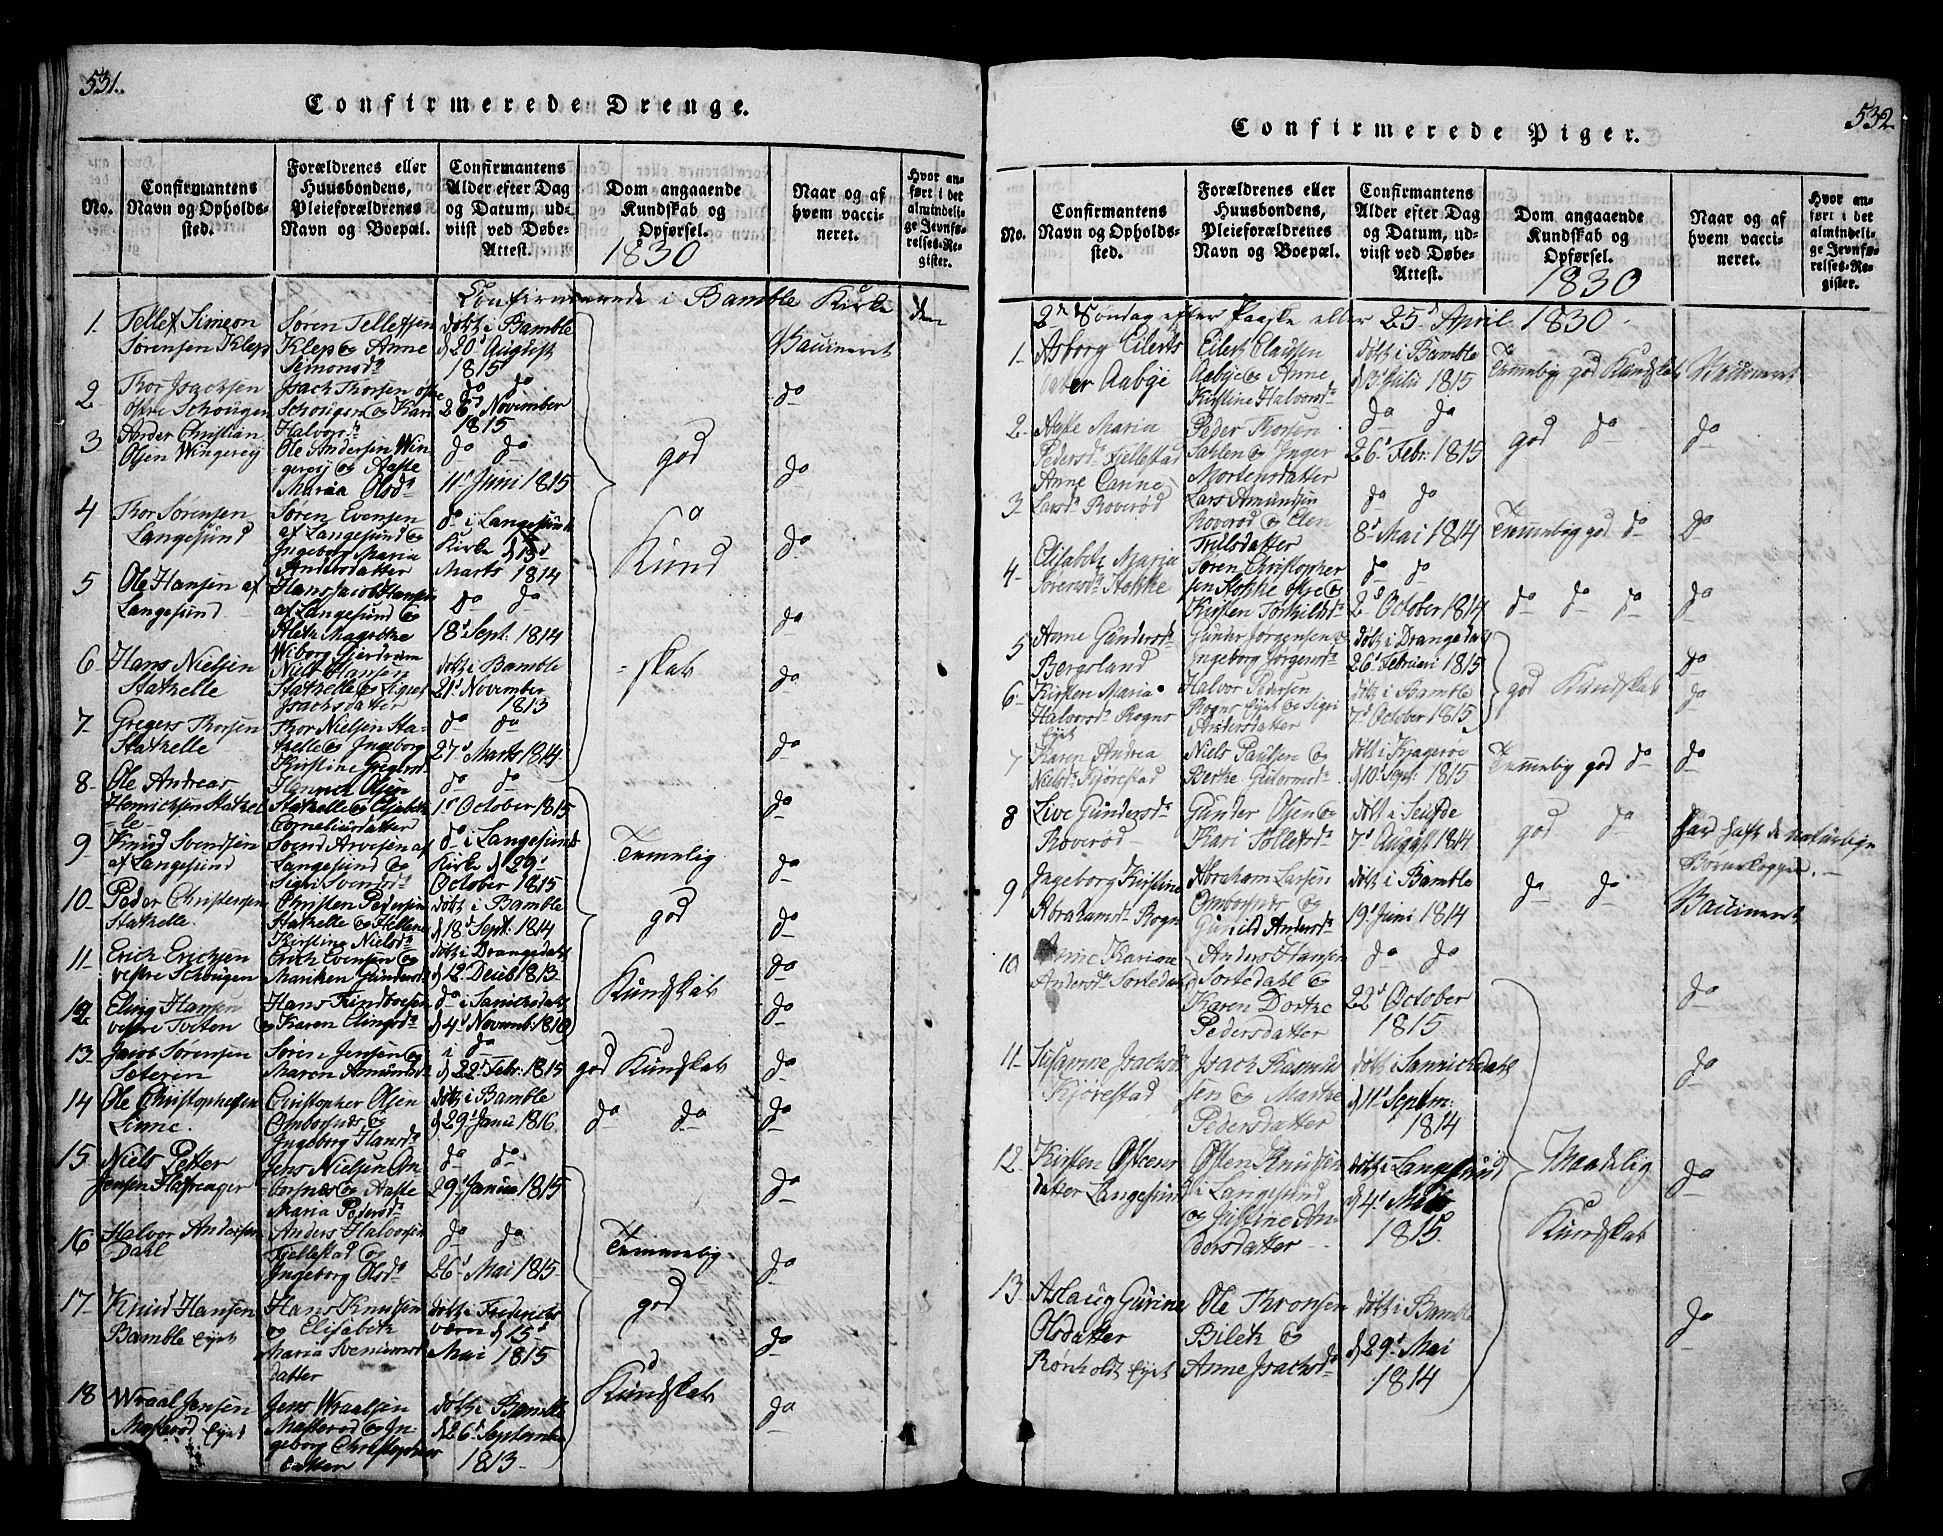 531.
Confirmerede Drenge.
No.
Confirmantens Navn og Opholdssted.
Forældrenes eller Huusbondens, Pleieforældrenes Navn og Boepæl.
Confirmantens Alder efter Dag og Datum, udviist ved Døbe-Attest.
Dom angaaende Kundskab og Opførsel.
1830
Naar og af hvem vaccineret.
Hvor anført i det almindelige Jevnførelses-Register.
Confirmerede i Bamble Kirke den
1. Tellef Simeon Sørensen Klep
Søren Tellefsen Klep og Anne Simonsdr
døbt i Bamble d 20d August 1815
Vaccineret
2 Thor Isachsen østre Schougen
Isach Thorsen østre Schougen og Kari Halvorsdr
do do 26d November 1815
do
3 Ander Christian Olsen Wingereij
Ole Andersen Wingereij og Aaste Maria Olsdr
do do 11d Juni 1815
god
do
4 Thor Sørensen Langesund
Søren Evensen af Langesund og Ingeborg Maria Andersdatter
do i Langesunds Kirke d 15d Marts 1814
Kund
do
5 Ole Hansen af Langesund
Hans Jacob Hansen af Langesund og Alethe Magrethe Wiborg Gjerdrum
do do 18d Sept: 1814
do
6 Hans Nielsen Stathelle
Niels Hansen Stathelle og Signe Isachsdatter
døbt i Bamble 21d November 1813
-skab
do
7- Gregers Thorsen Stathelle
Thor Nielsen Stathelle og Ingeborg Kirstine Gregersdr
do do 27d Marts 1814
do
8- Ole Andreas Henrichsen Stathelle
Henrich Olsen Stathelle og Elisabeth Corneliusdatter
do do 1d October 1815
do
9- Knud Svendsen af Langesund
Svend Arvesen af Langesund og Sigri Svendsdr
do i Langesunds Kirke d 29d October 1815
Temmelig
do
10- Peder Christensen Stathelle.
Christen Pedersen Stathelle og Hellene Kirstina Nielsdr
døbt i Bamble d 18d Sept: 1814
god
do
11- Erich Erichsen vestre Schougen
Erich Evensen og Mariken Gundersdr
døbt i Drangedal d 12 Decb 1813
Kundskab
do
12 Eling Hansen vestre Tveten
Hans Findvesen og Karen Elingsdr
do i Sanickedals d 4d Novemb: 1810
do
13- Jacob Sørensen Sæteren
Søren Jensen og Maren Amundsdr
i do d 22d Febr: 1815
god Kundskab
do
14 Ole Christophersen Linne.
Christopher Olsen Omborsnes og Ingeborg Hansdr
døbt i Bamble d 29d Janu 1816.
do do
do
15 Niels Petter Jensen Hafsager
Jens Nielsen Omborsnes og Aaste Maria Pedersdr
do do 29d Janua 1815
do
16 Halvor Andersen Dahl
Anders Halvorsen Fjellestad og Ingeborg Olsdr
do do 26d Mai 1815
Temmelig
do
17- Knud Hansen Bamble Eyet
Hans Knudsen og Elisabeth Maria Svenimsdatter
døbt i Frederiksværn d 15d Mai 1815
god
do
18 Wraal Jensen Masterød Eyet
Jens Wraalsen Masterød og Ingeborg Christophersdatter
døbt i Bamble d 26d September 1813
Kundskab
do
532
Confirmerede Piger.
No.
Confirmantens Navn og Opholdssted.
Forældrenes eller Huusbondens, Pleieforældrenes Navn og Boepæl.
Confirmantens Alder efter Dag og Datum, udviist ved Døbe-Attest.
Dom angaaende Kundskab og Opførsel.
1830
Naar og af hvem vaccineret.
Hvor anført i det almindelige Jevnførelses-Register.
2n Søndag efter Paaske eller 25d April 1830
1- Asborg Eilertsdatter Aabye
Eilert Clausen Aabye og Anne Kirstine Halvorsdr
døbt i Bamble d 3d Julii 1815
Temmelig god Kundskab
Vaccineret
2- Aaste Maria Pedersdr Fjellestad
Peder Thorsen Sahlen og Inger Mortensdatter
do do 26d Febr: 1815
god do
do
3- Anne Canne Larsdr Roverød
Lars Amundsen Roverød og Elen Trulsdatter
do do 8d Mai 1814
Temmelig god do
do
4- Elisabeth Maria Sørensdr Stokke
Søren Christophersen Stokke østre og Kirsten Torkildsdr
do do 2d October 1814
do do do
do
5 Anne Gundersdr Bergsland
Gunder Jørgensen og Ingeborg Jørgensdr
døbt i Drangedal 26d Februari 1815
god Kundskab
do
6- Kirsten Maria Halvorsdr Rogns Eyet
Halvor Pedersen Rogns Eyet og Sigri Andersdatter
døbt i Bamble 7d October 1815
do
7 Karen Andrea Nielsdr Kjørestad
Niels Paulsen og Berthe Gulormsdr
døbt i Kragerøe d 10d Sept: 1815
Temmelig god do
do
8 Live Gundersdr Roverød
Gunder Olsen og Kari Tollefsdr
døbt i Seufde 7d August 1814
god do
har haft de naturlige Bornekopper.
9 Ingeborg Kirstine Abrahamsdr Rogn
Abraham Larsen Ombosnes og Gunild Andersdr
døbt i Bamble 19d Juni 1814
do do
Vaccineret
10 Anne Karine Andersdr Sortedal
Anders Hansen Sortedahl og Karen Dorthe Pedersdatter
do do 22d October 1815
do
11- Susanne Isachsdr Kjørestad
Isach Rasmussen og Marthe Pedersdatter
døbt i Sannickedals d 11d Septm: 1814
do
12. Kirsten Østensdatter Langesund
Østen Knudsen i Langesund og Justine Andersdatter
døbt i Langesund d 4d Mai 1815
Maadelig
do
13 Aslaug Gurine Olsdatter Rønholdt Eyet
Ole Thronsen Bileth og Anne Isachsdr
døbt i Bamble d 29d Mai 1814
Kundskab
do